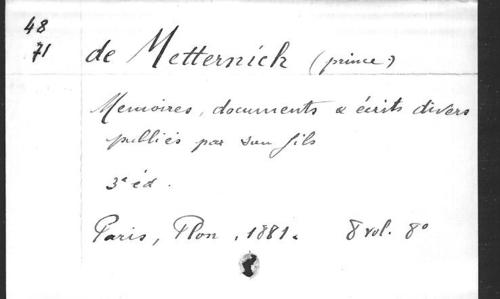 48
71
de Metternich (prince)
Memoires, documents & écrits divers
publiés par son fils
3e éd.
Paris, Plon, 1881. 8 vol. 8°